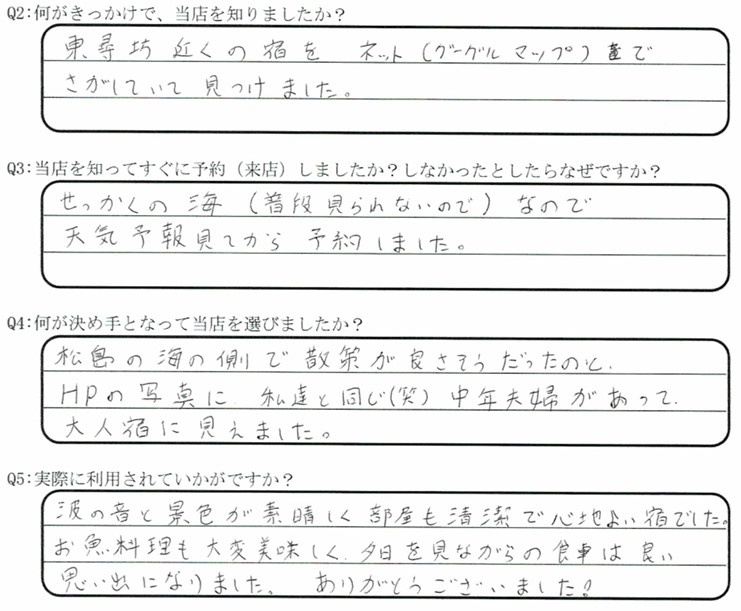 Q2:何がきっかけで、当店を知りましたか？
東尋坊 近くの宿を ネット(グーグル マップ)で
さがしていて 見つけました。
Q3:当店を知ってすぐに予約（来店）しましたか？しなかったとしたらなぜですか？
せっかくの 海 (普段見られないので) なので
天気予報見てから 予約しました。
Q4:何が決め手となって当店を選びましたか？
松島の海の側で 散策が良さそうだったのと、
HPの写真に 私達と同じ(笑) 中年夫婦があって、
大人宿に見えました。
Q5:実際に利用されていかがですか？
波の音と景色が素晴しく 部屋も清潔で心地よい宿でした。
お魚料理も大変美味しく、夕日を見ながらの食事は良い
思い出になりました。 ありがとうございました!